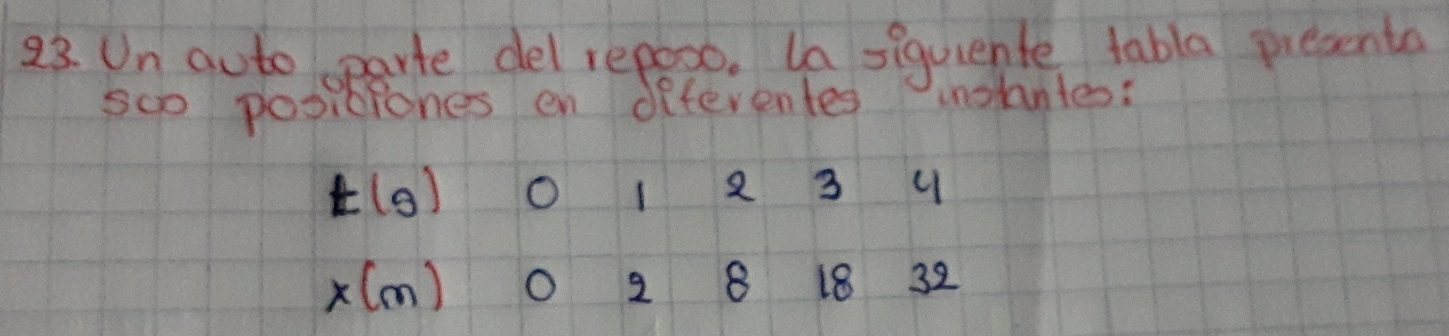 23. Un auto parte del reposo. la siguiente tabla presenta
sus posiciones en diferentes instantes:
t(s) 0 1 2 3 4
x(m) 0 2 8 18 32